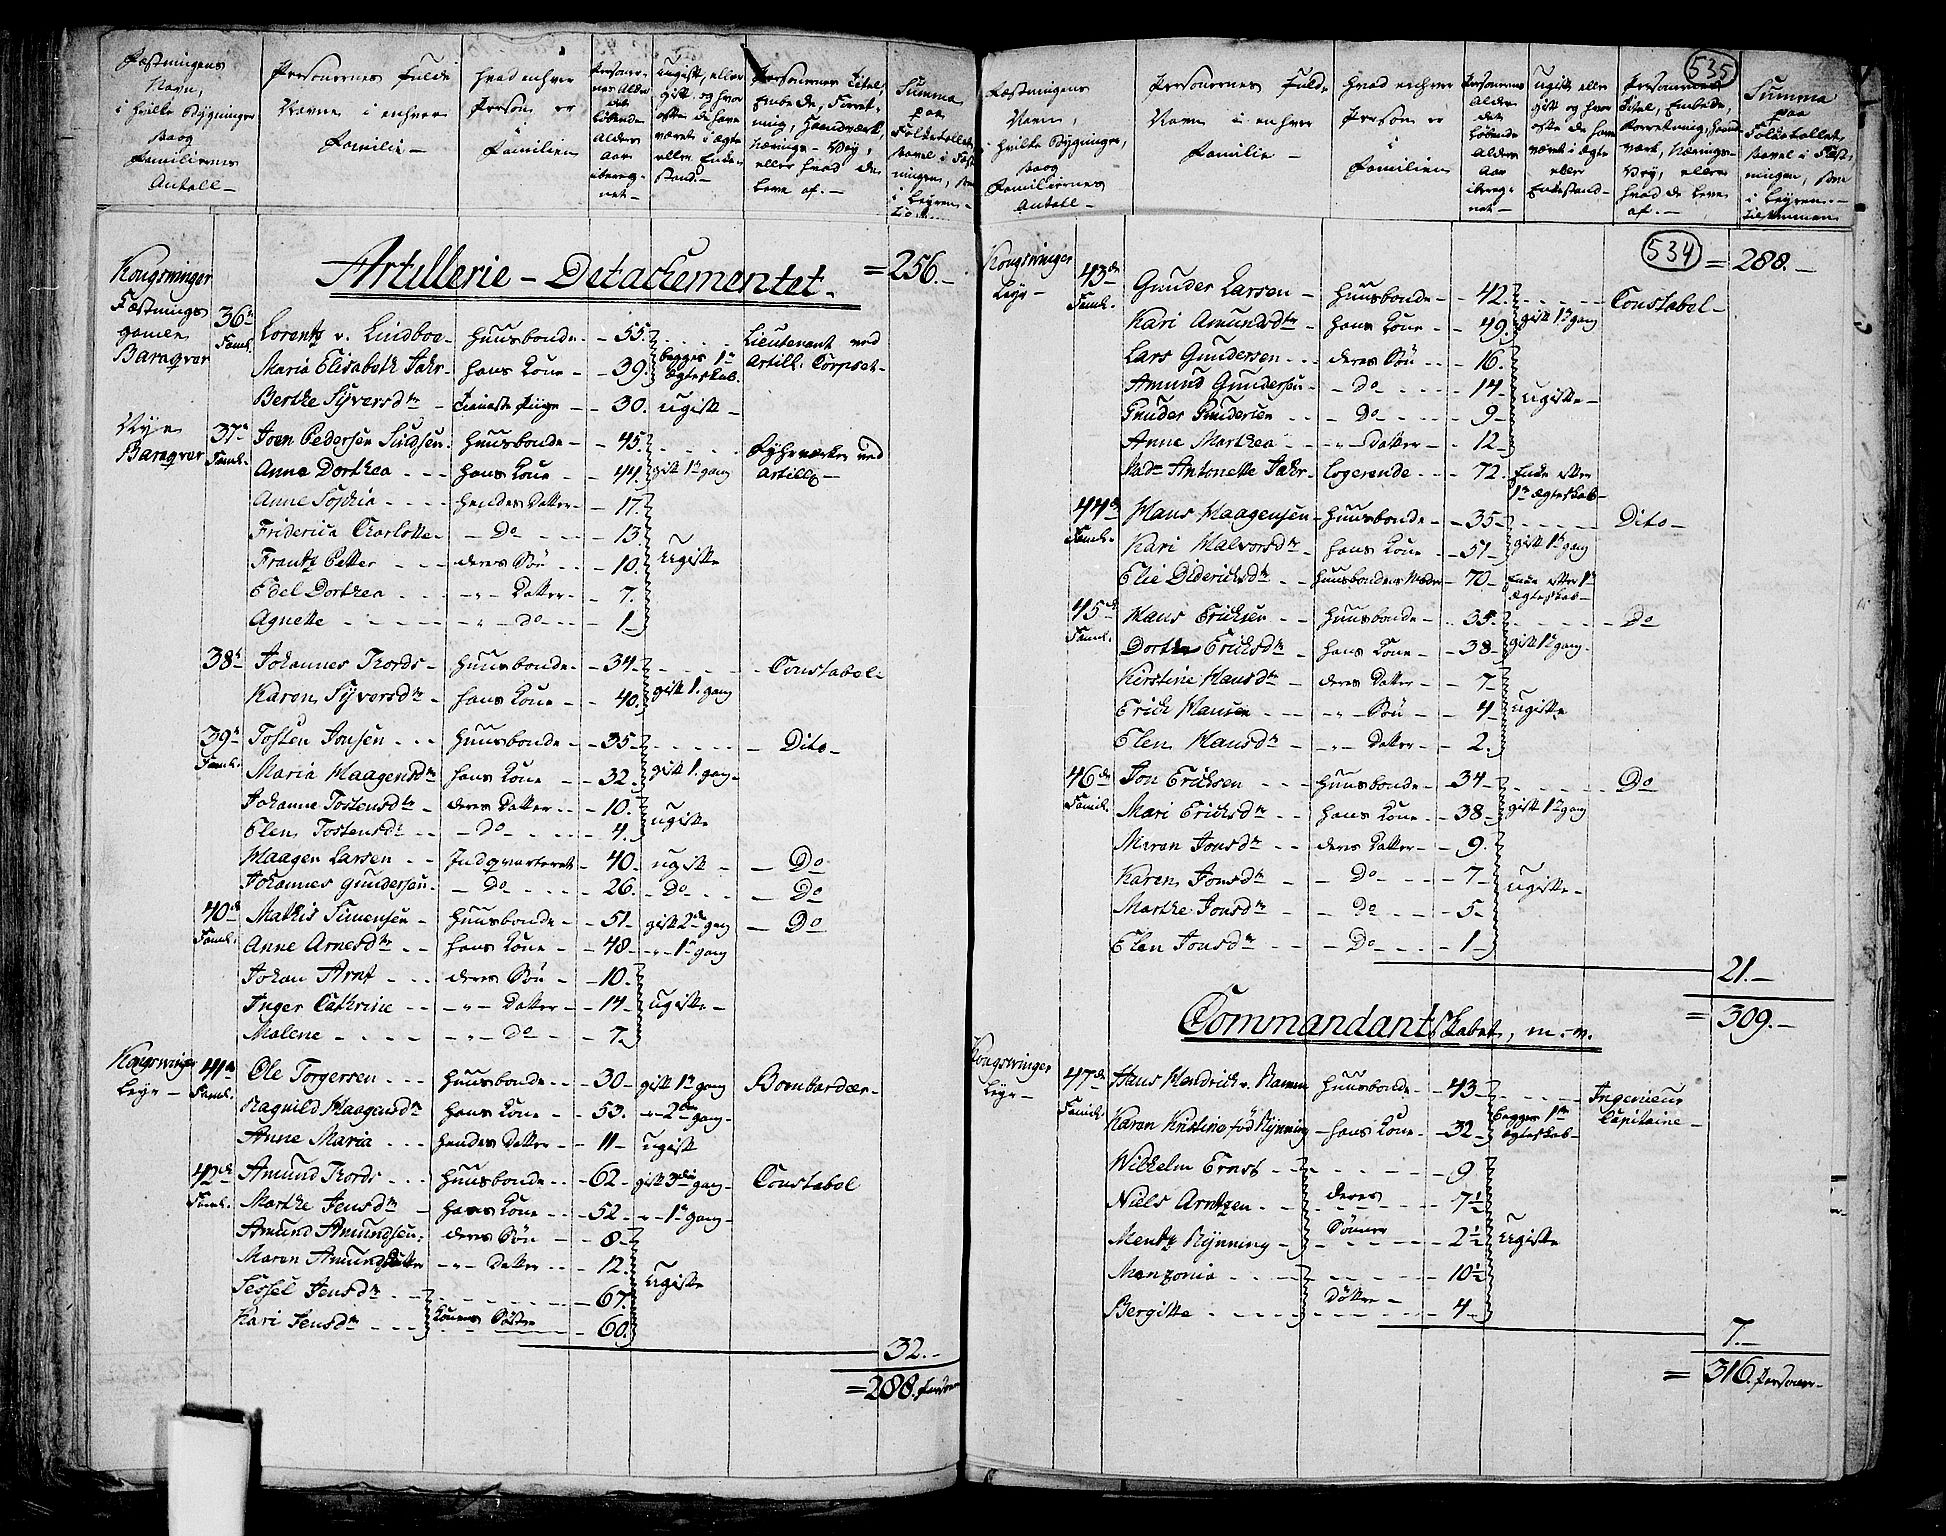 Fæstningens
Navn,
i hvilke Bygninger
Saog
Familiernes
Antall –
Personernes fulde
Navne i enhver
Familie –
hvad enhver
Person er
i
Familien
Personer-
nes Alder
det
løbende
Alders
Aar
ibereg-
net –
ugift, eller
gift, og hvor
ofte de have
været i Ægte
eller Enke-
stand. –
Personernes Titel,
Embede, Forret-
ning, Haandværk,
Nærings-Vej,
eller hvad de
leve af. –
Summa
paa
Folketallet
Artillerie – Detachementet – = 256. –
Kongswinger
Fæstnings
gamle
Baraqver
36te Faml. Lorentz v. Lindboe – Huusbonde – 55. Lieutenant ved
Maria Elisabeth Fahr – hans Kone – 39. begges 1te Ægteskab. Artill. Corpset –
Berthe Syversdtr – Tieneste Piige – 30. ugift –
Nye
Baraqver
37te Faml. Joen Pedersen – Huusbonde – 45. ved
Anne Dorthea – hans Kone – 44. gift 1te gang Artille –
Anne Sophia – hendes Datter – 17.
Friderica Charlotte – Do – 13.
Frantz Petter – deres Søn – 10. ugifte
Edel Dorthea – " – Datter – 7.
Agnette – " – Do – 1 –
38te Johannes Thords – Huusbonde – 34 – Constabel –
Karen Syversdtr – hans Kone – 40. gift 1. gang
39te Faml. Tosten Jonsen – Huusbonde – 35 – Dito –
Maria Haagensdtr – hans Kone – 32. gift 1. gang –
Johanne Tostensdtr – deres Datter – 10.
Elen Tostensdtr – Do – 4. ugifte
Haagen Larsen – Indqvarteret – 40. ugift – Do
Johannes Gundersen – Do – 26. – Do – Do
40de Faml. Mathis Simensen – Huusbonde – 51 – gift 2de gang – Do
Anne Arnesdtr – hans Kone – 48 – " – 1te gang
Johan Arnt – deres Søn – 10.
Inger Cathrine – " – Datter – 14 – ugifte –
Malene – " – Do – 7.
Kongswinger
Leyr –
41de Faml. Ole Torgersen – Huusbonde – 30 – gift 1te gang Bombardeer –
Ragnild Haagensdtr – hans Kone – 53. – " – 2den gang –
Anne Maria – hendes Datter – 11 – ugift
42de Faml. Amund Thords – Huusbonde – 62 – gift 3die gang – Constabel
Marthe Jensdtr – hans Kone – 52 – " – 1te gang –
Amund Amundsen – deres Søn – 8 –
Maren Amundsdatter – " – Datter – 12.
Sessel Jensdtr – 67. ugifte
Kari Jensdtr – Konens Søstre – 60.
32. –
= 288. Personer
535
Fæstningens
Navn,
i hvilke Bygninger,
Saog
Familiernes
Antall –
Personernes fulde
Navne i enhver
Familie –
hvad enhver
Person er
i
Familien
Personernes
Alder
det
løbende
Alders
Aar
ibereg-
net –
ugift eller
gift og hvor
ofte de have
været i Ægte
eller
Enkestand –
Personernes
Titel, Embede,
Forretning, Haand-
værk, Nærings-
Vej, eller
hvad de leve
af. –
Summa
paa
Folketallet,
534
= 288. –
Kongswinger
Leyr –
43de Faml. Gunder Larsen – Huusbonde – 42. Constabel –
Kari Amundsdtr – hans Kone – 49. gift 1te gang
Lars Gundersen – deres Søn – 16.
Amund Gundersen – Do – 14 – ugifte –
Gunder Gundersen – Do – 9 –
Anne Marthea – " – Datter – 12
Madme Antonette Fahr – Logerende – 72. Enke efter
1te Ægteskab –
44de Faml. Hans Haagensen – Huusbonde – 35 – Dito –
Kari Halvorsdtr – hans Kone – 51 – gift 1te gang
Elie Diderichsdtr – Huusbondens Moder – 70 – Enke efter 1te
Ægteskab –
45de Faml. Hans Erichsen – Huusbonde – 35 – Do
Dorthe Erichsdtr – hans Kone – 38 – gift 1te gang –
Kirstine Hansdtr – deres Datter – 7 –
Erich Hansen – " – Søn – 4 – ugifte
Elen Hansdtr – " – Datter – 2.
46de Famil. Jon Erichsen – Huusbonde – 34 – Do
Mari Erichsdtr – hans Kone – 38 – gift 1te gang
Maren Jonsdtr – deres Datter – 9.
Karen Jonsdtr – Do – 7 – ugifte –
Marthe Jonsdtr – Do – 5 –
Elen Jonsdtr – Do – 1 –
21. –
= 309. –
Commandantskabet, m. v.
Kongswinger
Leyr –
47de Famil. Hans Hendrich v. Ramm Huusbonde – 43 – Ingenieur
Karen Kristine fød Rynning – hans Kone – 32 – begges 1te Ægteskab – Capitaine –
Wilhelm Ernst – 9
Niels Arntzen – deres – 7½
Mentz Rynning – Sønner – 2½ ugifte
Manzonia – 10½
Bergitte – Døttre – 4 –
7. –
= 316. Personer –